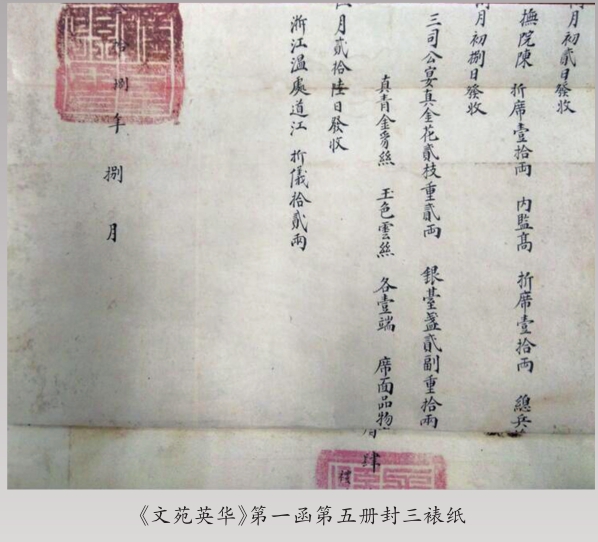 月初貳日發收
撫院陳 折席壹拾兩 內監高 折席壹拾兩 總兵
月初捌日發收
三司公宴真金花貳枝重貳兩 銀臺盞貳副重拾兩
真青金豸絲 玉色雲絲 各壹端 席面品物
月貳拾陸日發收
浙江溫處道江 折儀拾貳兩
拾捌年 捌月
肆
《文苑英华》第一函第五册封三裱纸